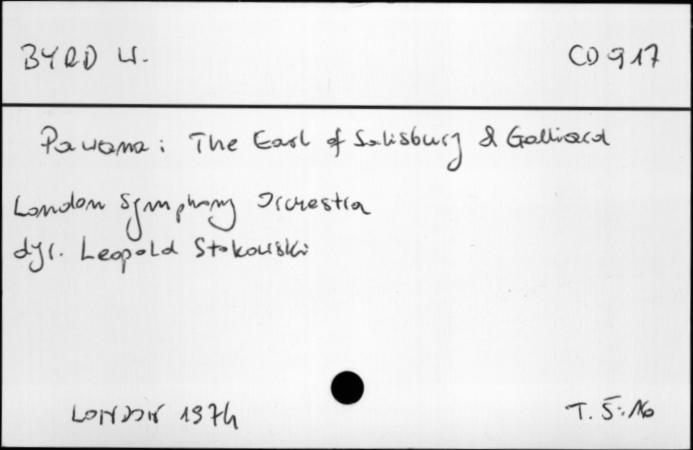 BYRD W.
CD 917
Pawana: The Earl of Salisbury & Galliard
London Symphony Orchestra
dyr. Leopold Stokowski
LONDON 1974
T. 5:10